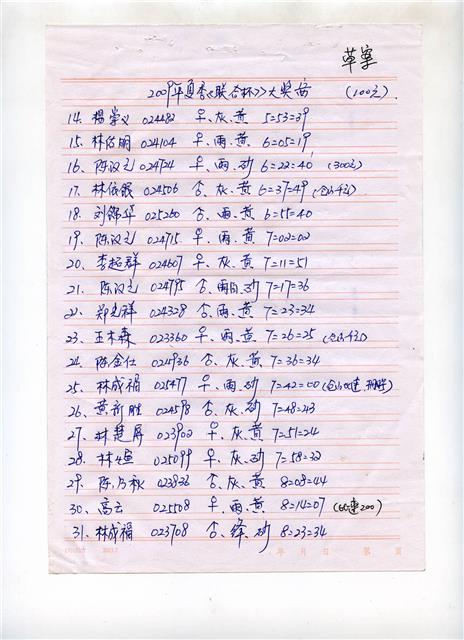 草案
2009年夏季《联合杯》大奖赛 (100元)
14、杨学义 024482 ♀、灰、黄 5=53=39
15、林俗明 024104 ♀、雨、黄 6=05=19
16、陈汉元 024724 ♀、雨、砂 6=22=40 (300元)
17、林依银 024506 ♂、灰、黄 6=37=49
18、刘锦华 025260 ♂、雨、黄 6=55=40
19、陈汉元 024715 ♀、雨、黄 7=02=02
20、李超群 024607 ♀、灰、黄 7=11=51
21、陈汉元 024795 ♂、雨白、砂 7=17=36
22、郑光祥 024328 ♂、雨、黄 7=23=34
23、王木森 023360 ♀、雨、黄 7=26=25
24、陈金仕 024936 ♂、灰、黄 7=36=34
25、林成福 025477 ♀、雨、砂 7=42=00
26、黄新胜 024598 ♂、灰、砂 7=48=43
27、林楚屏 023902 ♀、灰、黄 7=51=24
28、林 025099 ♀、灰、砂 7=58=32
29、陈 秋 023832 ♂、灰、黄 8=08=44
30、高云 025508 ♀、雨、黄 8=14=07
31、林成福 023708 ♂、绛、砂 8=23=34
年 月 日 第 页